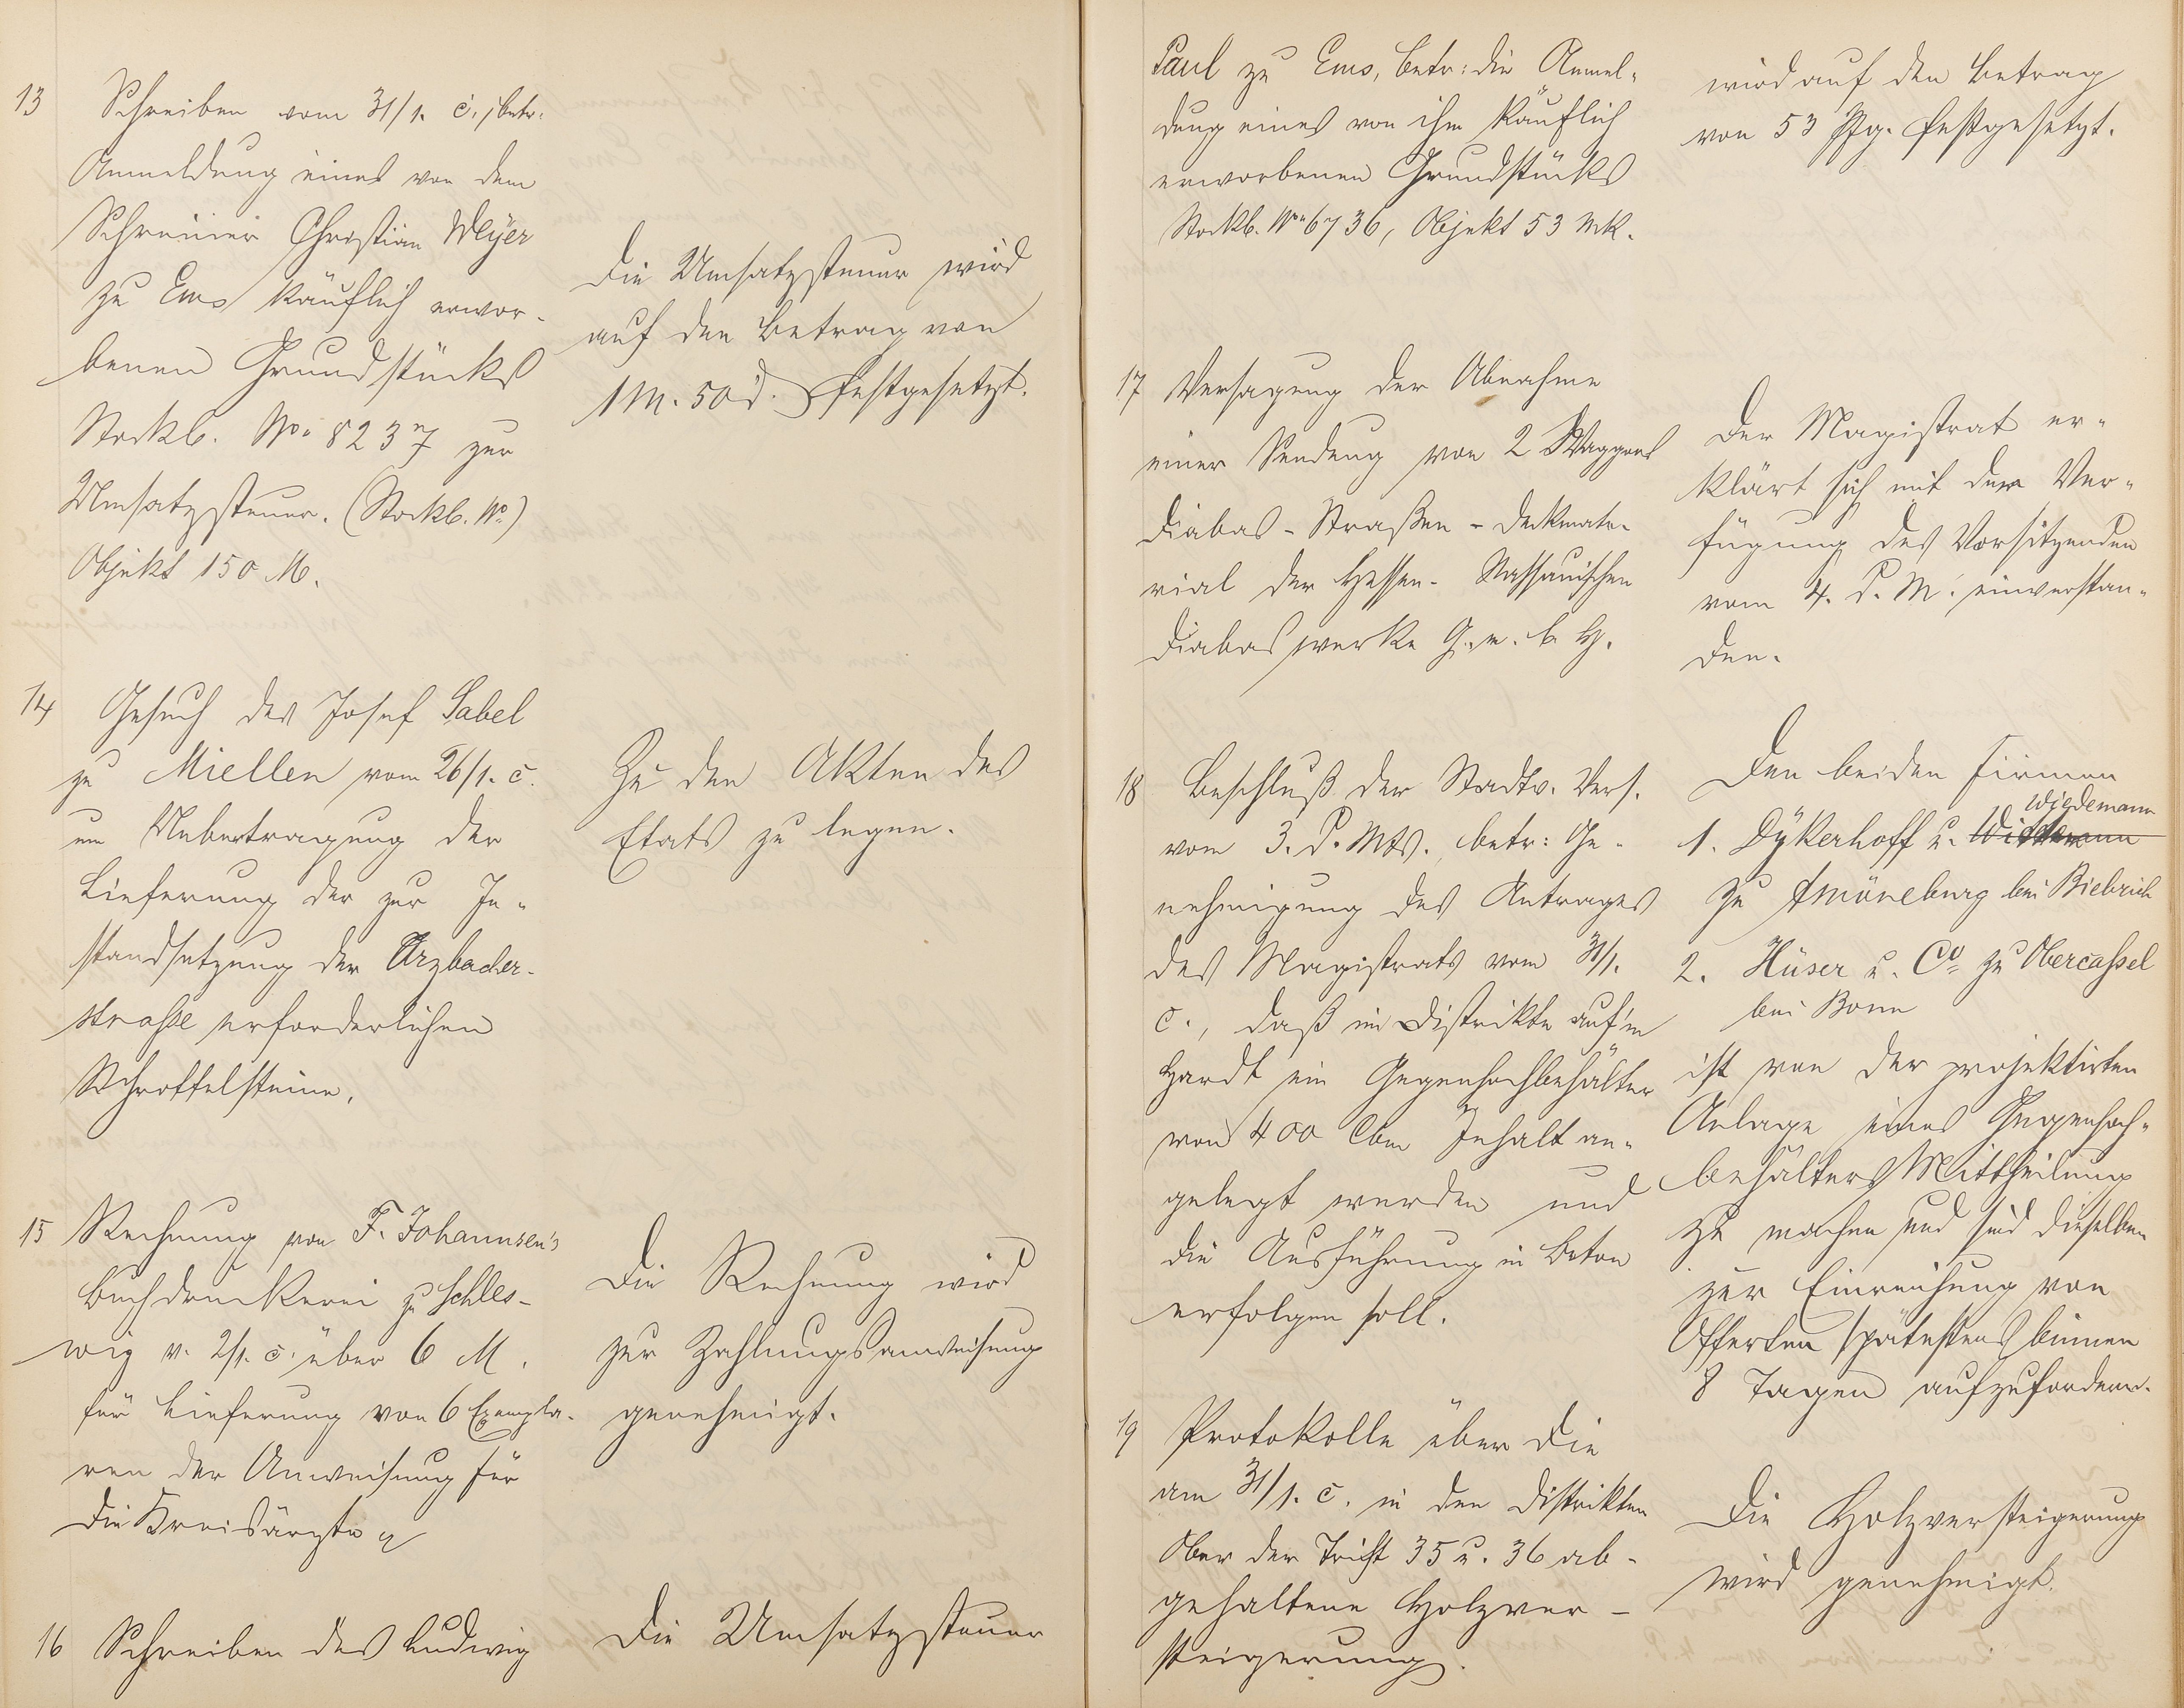 13 Schreiben vom 31/1. c., betr.
Anmeldung eines von dem
Schreiner Christian Meyer
zu Ems käuflich erwor-
benen Grundstücks
Stockb. No. 8237 zur
Umsatzsteuer. (Stockb. No.)
Objekt 150 M.
Die Umsatzsteuer wird
auf den Betrag von
1 M. 50 d. festgesetzt.
14 Gesuch des Josef Sabel
zu Miellen vom 26/1. c.
um Uebertragung der
Lieferung der zur In-
standsetzung der Arzbacher-
strasse erforderlichen
Schroffelsteine.
Zu den Akten des
Etats zu legen.
15 Rechnung von F. Johannsen's
Buchdruckerei zu Schles-
wig v. 2/1. c. über 6 M.
für Lieferung von 6 Exempla-
ren der Anweisung für
die Kreisärzte
Die Rechnung wird
zur Zahlungsanweisung
genehmigt.
16 Schreiben des Ludwig
Die Umsatzsteuer
Paul zu Ems, betr: die Anmel-
dung eines von ihm käuflich
erworbenen Grundstücks
Stockb. No 6736, Objekt 53 Mk.
wird auf den Betrag
von 53 Pfg. festgesetzt.
17 Versagung der Abnahme
einer Sendung von 2 Waggons
Diabas-Straßen-Deckmate-
rial der Hessen-Nassauischen
Diabaswerke G. m. b. H.
Der Magistrat er-
klärt sich mit der Ver-
fügung des Vorsitzenden
vom 4. d. M. einverstan-
den.
18 Beschluß der Stadtv. Vers.
vom 3. d. Mts., betr: Ge-
nehmigung des Antrages
des Magistrats vom 31/1.
c., daß im Distrikte auf'm
Hardt ein Gegenhochbehälter
von 400 Cbm Inhalt an-
gelegt werden und
die Ausführung in Beton
erfolgen soll.
Den beiden Firmen
Wiedemann
1. Dykerhoff u.
zu Amöneburg bei Biebrich
2. Hüser u. Co zu Obercassel
bei Bonn
ist von der projektirten
Anlage eines Gegenhoch-
behälters Mittheilung
zu machen und sind dieselben
zur Einreichung von
Offerten spätestens binnen
8 Tagen aufzufordern.
19 Protokolle über die
am 31/1. c. in den Distrikten
Ober der Trift 35 u. 36 ab-
gehaltene Holzver-
steigerung.
Die Holzversteigerung
wird genehmigt.